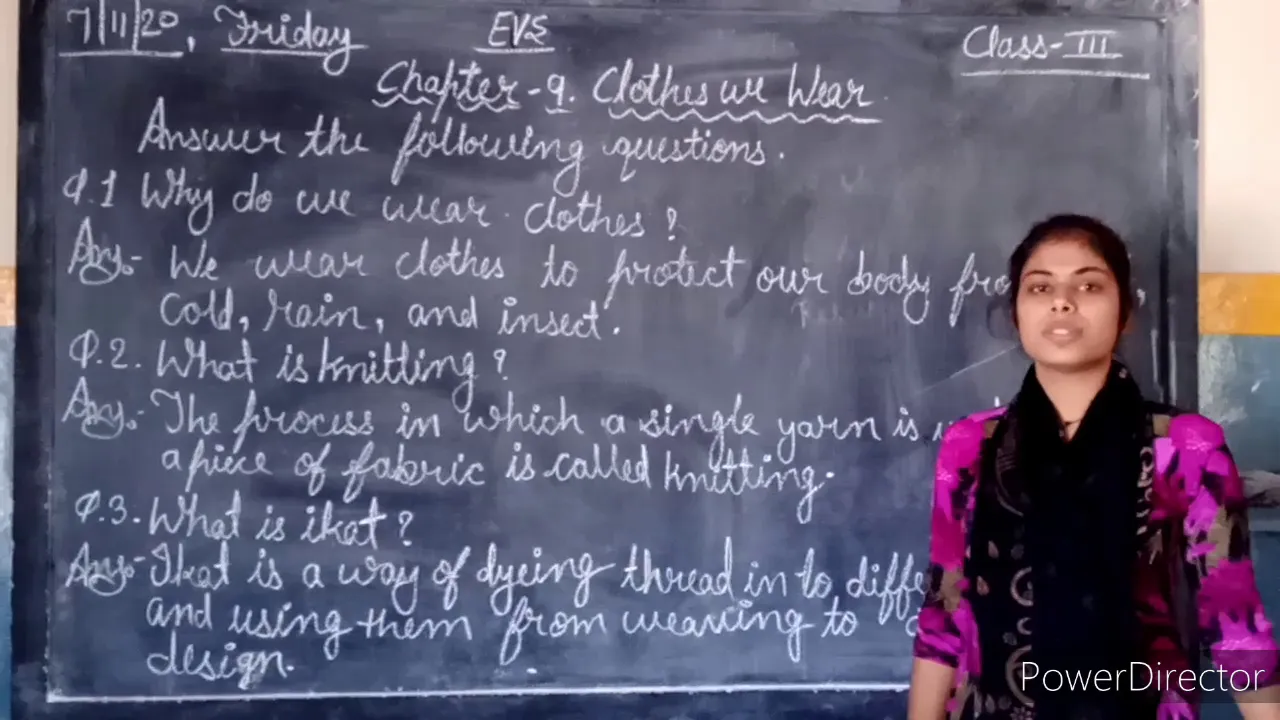 7/11/20, Friday EVS Class-III
Chapter-9. Clothes we Wear
Answer the following questions.
Q.1 Why do we wear clothes?
Ans:- We wear clothes to protect our body fro ,
cold, rain, and insect.
Q.2. What is knitting?
Ans:- The process in which a single yarn is
a piece of fabric is called knitting.
Q.3. What is ikat?
Ans:- Ikat is a way of dyeing thread in to diffe
and using them from weaving to
design.
PowerDirector